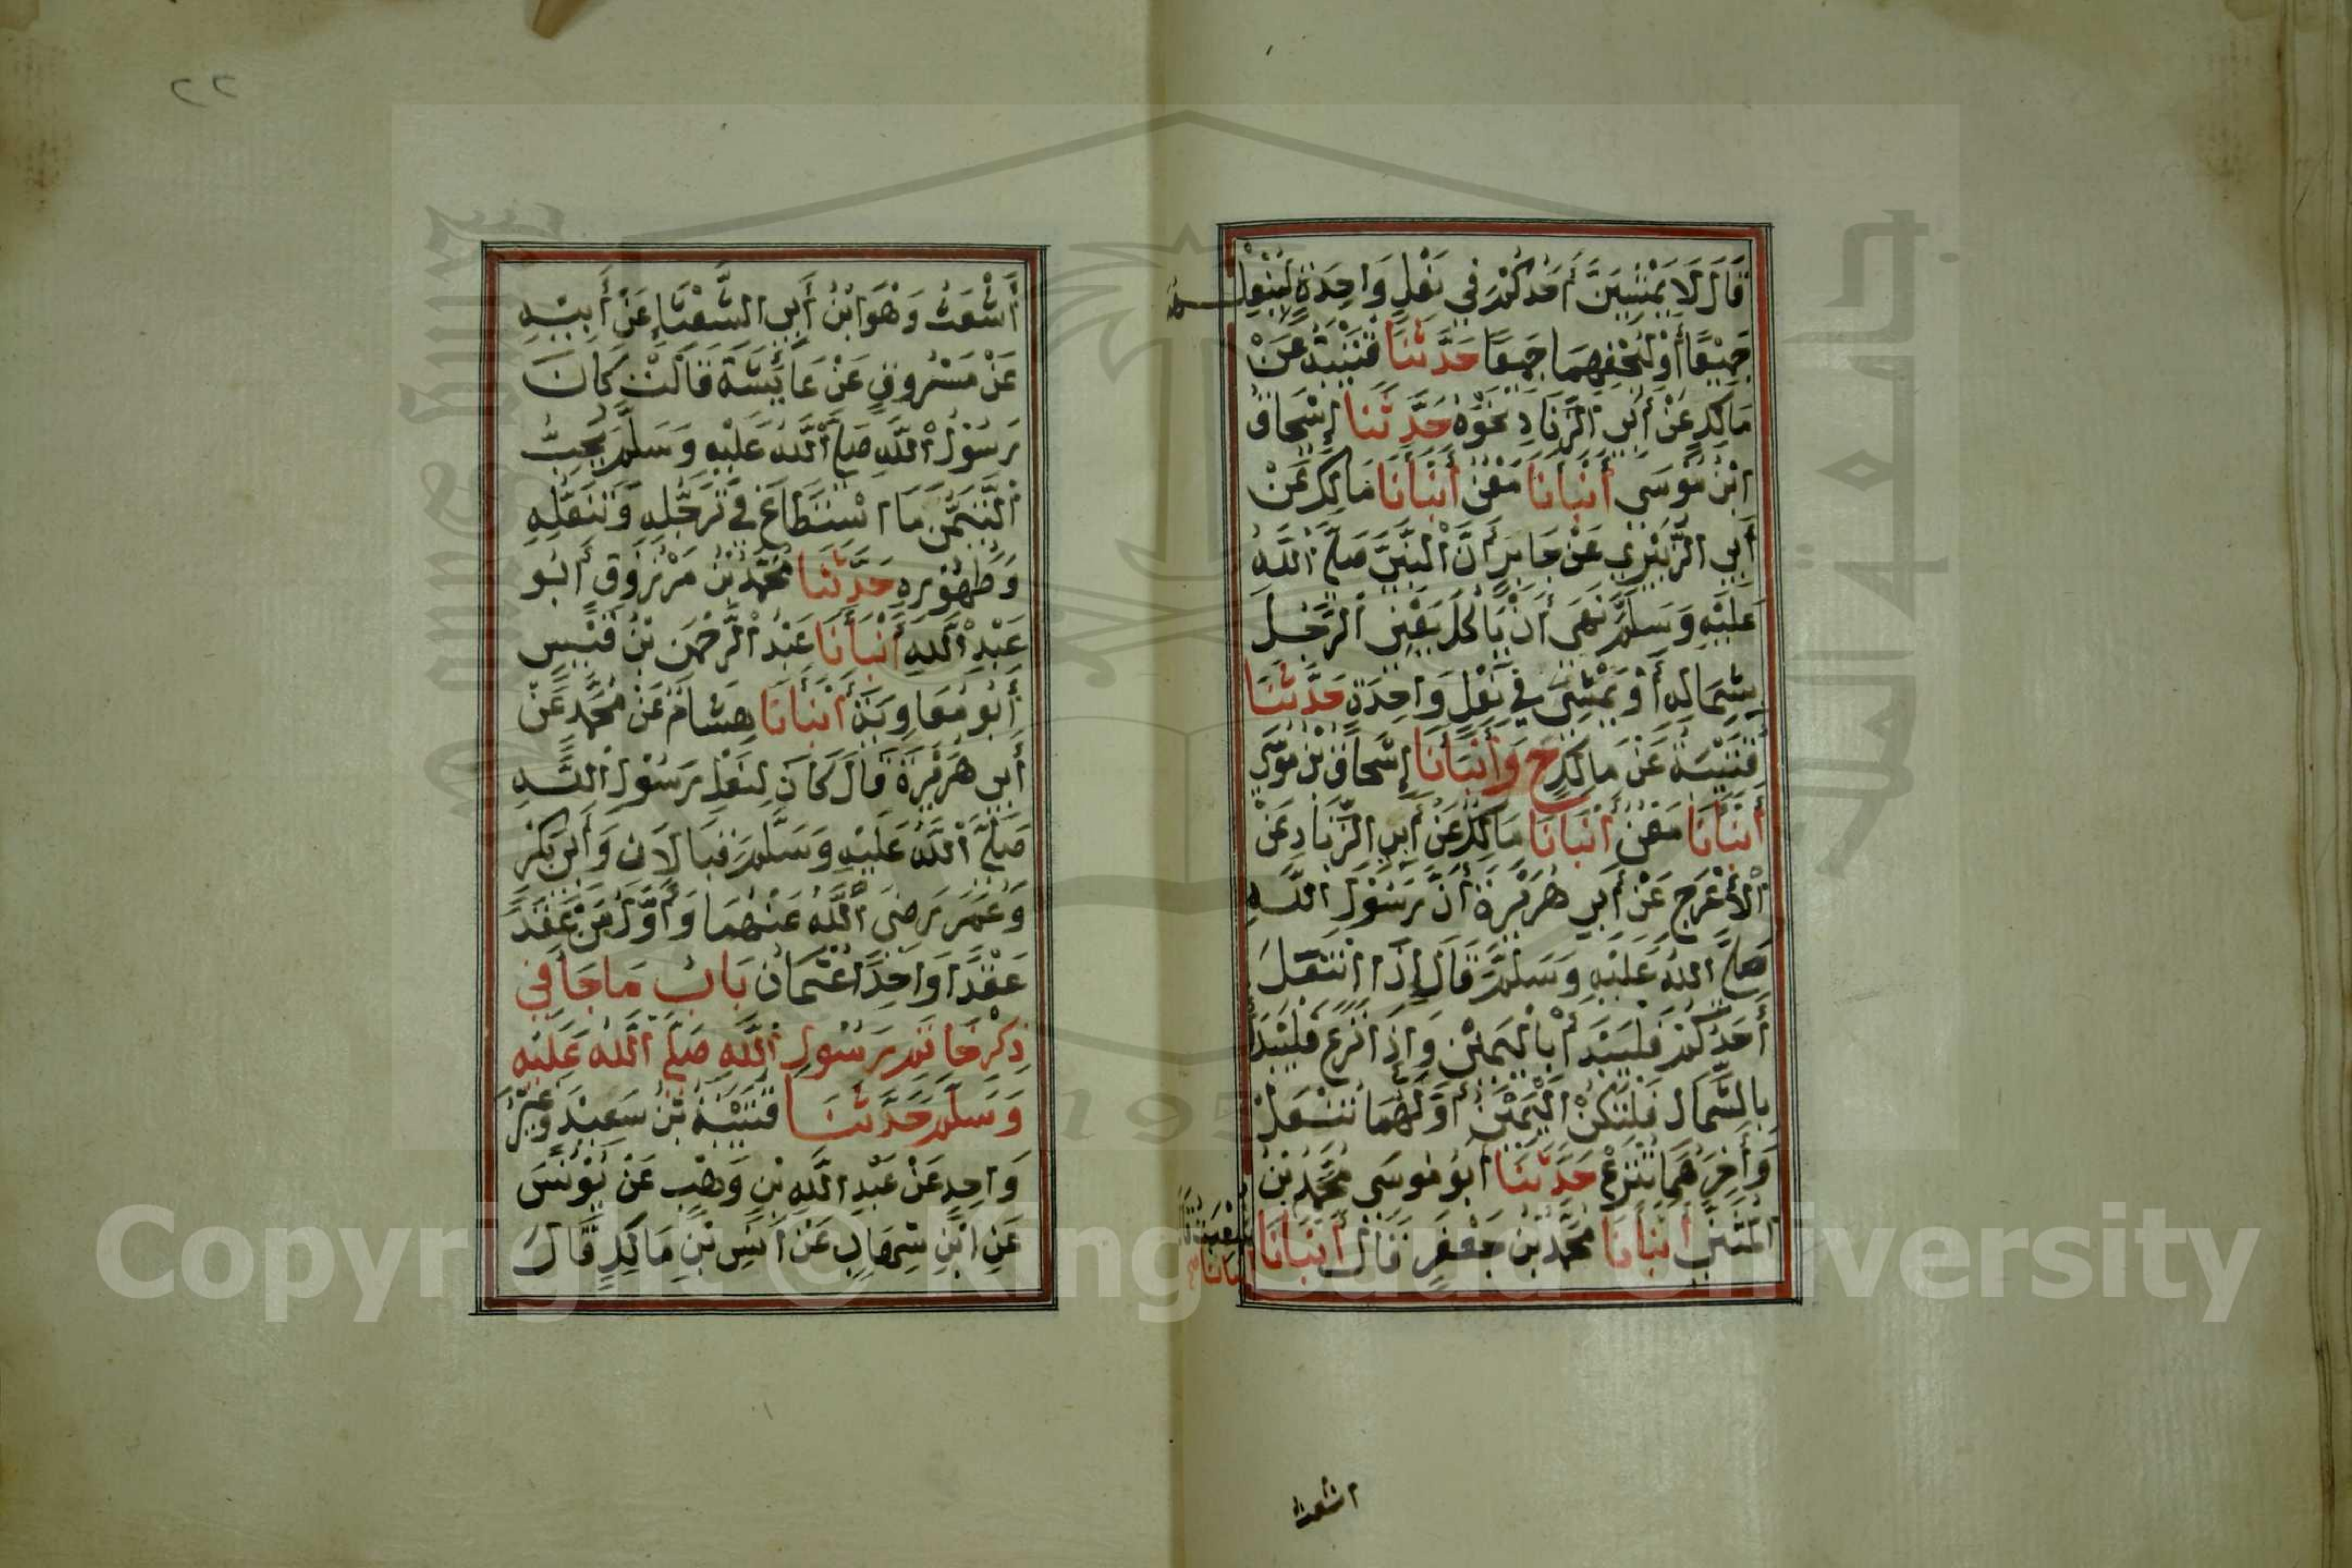 قَالَ لَا يَمْشِيَنَّ أَحَدُكُمْ فِي نَعْلٍ وَاحِدَةٍ لِيَنْعَلْهُمَا
جَمِيْعًا أَوْ لِيُحْفِهِمَا جَمِيعًا حَدَّثَنَا قُتَيْبَةُ عَنْ
مَالِكٍ عَنْ أَبِي الزِّنَادِ نَحْوَهُ حَدَّثَنَا إِسْحَاقُ
ابْنُ مُوْسَى أَنْبَأَنَا مَعْنٌ أَنْبَأَنَا مَالِكٌ عَنْ
أَبِي الزُّبَيْرِ عَنْ جَابِرٍ أَنَّ النَّبِيَّ صَلَّى اللَّهُ
عَلَيْهِ وَسَلَّمَ نَهَى أَنْ يَأْكُلَ يَعْنِي الرَّجُلَ
بِشِمَالِهِ أَوْ يَمْشِيَ فِي نَعْلٍ وَاحِدَةٍ حَدَّثَنَا
قُتَيْبَةُ عَنْ مَالِكٍ ح وَأَنْبَأَنَا إِسْحَاقُ بْنُ مُوْسَى
أَنْبَأَنَا مَعْنٌ أَنْبَأَنَا مَالِكٌ عَنْ أَبِي الزِّنَادِ عَنْ
الْأَعْرَجِ عَنْ أَبِي هُرَيْرَةَ أَنَّ رَسُوْلَ اللَّهِ
صَلَّى اللَّهُ عَلَيْهِ وَسَلَّمَ قَالَ إِذَا انْتَعَلَ
أَحَدُكُمْ فَلْيَبْدَأْ بِالْيَمِيْنِ وَإِذَا نَزَعَ فَلْيَبْدَأْ
بِالشِّمَالِ فَلْتَكُنْ الْيَمِيْنُ أَوَّلَهُمَا تُنْعَلُ
وَآخِرَهُمَا تُنْزَعُ حَدَّثَنَا أَبُو مُوسَى مُحَمَّدُ بْنُ
الْمُثَنَّى أَنْبَأَنَا مُحَمَّدُ بْنُ جَعْفَرٍ قَالَ أَنْبَأَنَا
شُعْبَةُ قَالَ
أَنْبَأَنَا
اشعث
٢٢
أَشْعَثُ وَهُوَ ابْنُ أَبِي الشَّعْثَاءِ عَنْ أَبِيْهِ
عَنْ مَسْرُوقٍ عَنْ عَائِشَةَ قَالَتْ كَانَ
رَسُوْلُ اللَّهِ صَلَّى اللَّهُ عَلَيْهِ وَسَلَّمَ يُحِبُّ
التَّيَمُّنَ مَا اسْتَطَاعَ فِي تَرَجُّلِهِ وَتَنَعُّلِهِ
وَطُهُوْرِهِ حَدَّثَنَا مُحَمَّدُ بْنُ مَرْزُوْقٍ أَبُو
عَبْدِ اللَّهِ أَنْبَأَنَا عَبْدُ الرَّحْمَنِ بْنُ قَيْسٍ
أَبُو مُعَاوِيَةَ أَنْبَأَنَا هِشَامٌ عَنْ مُحَمَّدٍ عَنْ
أَبِي هُرَيْرَةَ قَالَ كَانَ لِنَعْلِ رَسُوْلِ اللَّهِ
صَلَّى اللَّهُ عَلَيْهِ وَسَلَّمَ قِبَالَانِ وَأَبِي بَكْرٍ
وَعُمَرَ رَضِيَ اللَّهُ عَنْهُمَا وَأَوَّلُ مَنْ عَقَدَ
عَقْدًا وَاحِدًا عُثْمَانُ بَابُ مَا جَاءَ فِي
ذِكْرِ خَاتَمِ رَسُولِ اللَّهِ صَلَّى اللَّهُ عَلَيْهِ
وَسَلَّمَ حَدَّثَنَا قُتَيْبَةُ بْنُ سَعِيْدٍ وَغَيْرُ
وَاحِدٍ عَنْ عَبْدِ اللَّهِ بْنِ وَهْبٍ عَنْ يُوْنُسَ
عَنِ ابْنِ شِهَابٍ عَنْ أَنَسِ بْنِ مَالِكٍ قَالَ
Copyright © King Saud University